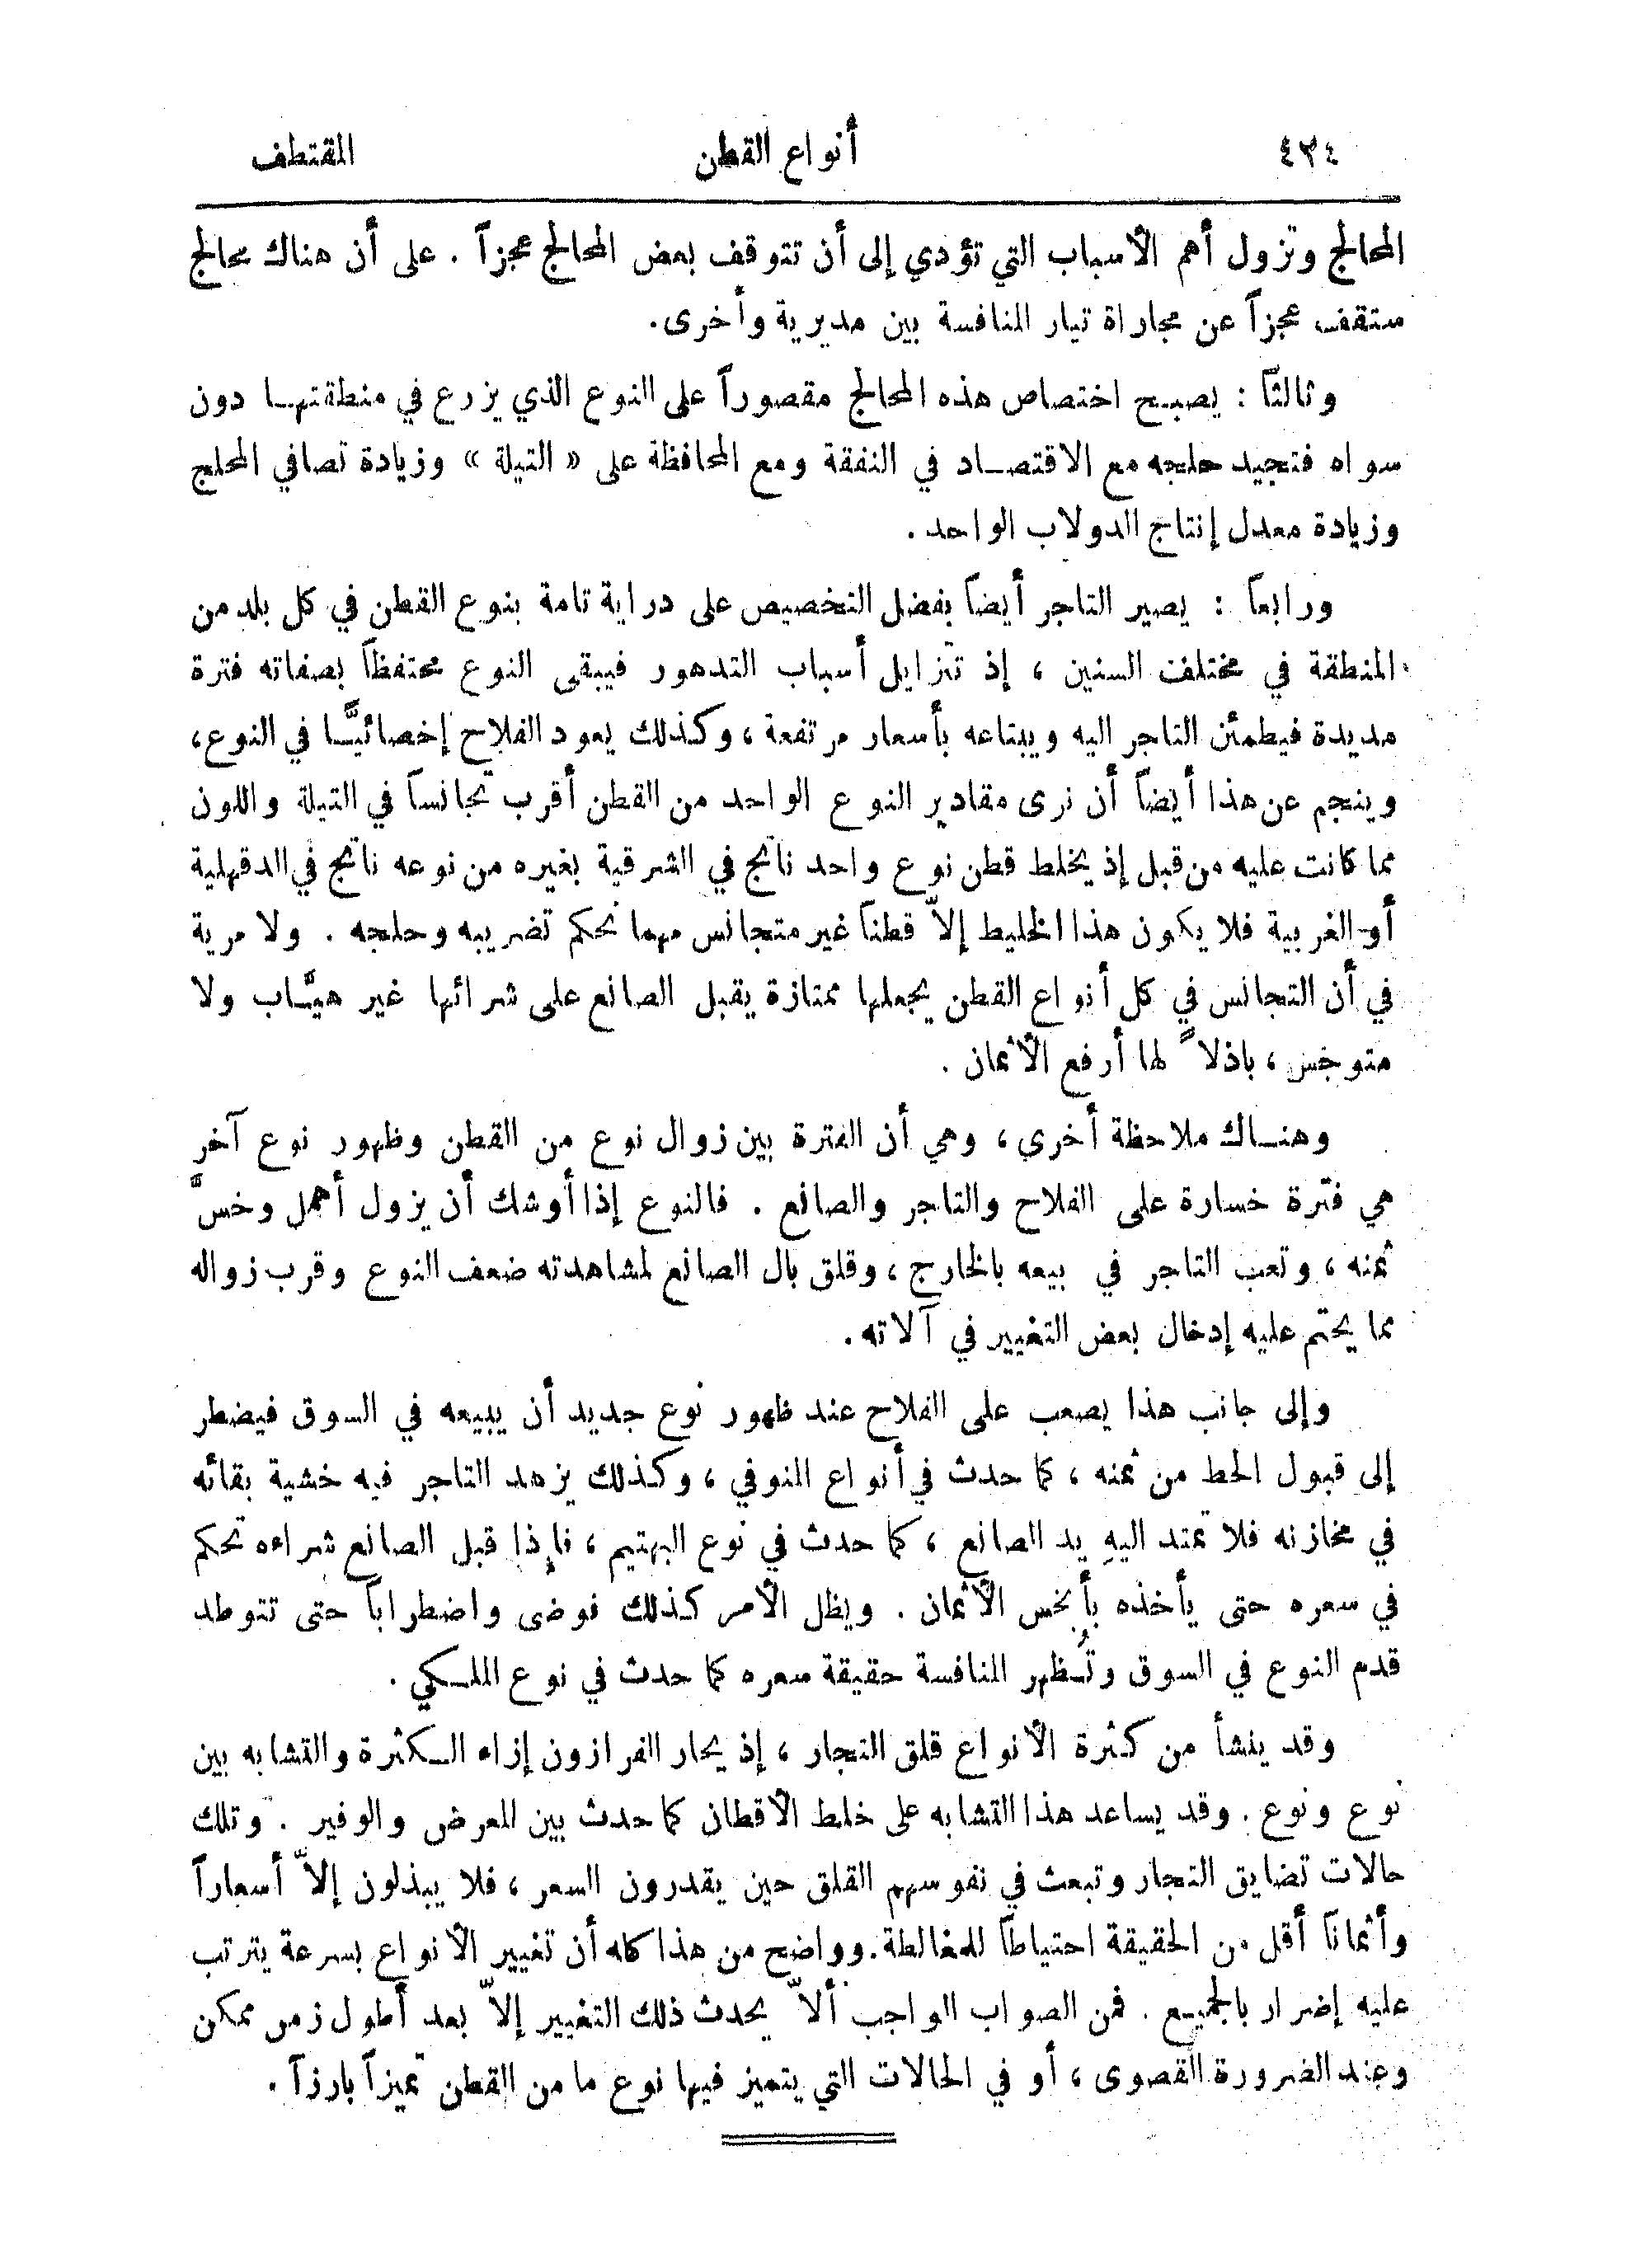 ٤٣٤ أنواع القطن المقتطف
المحالج وتزول أهم الأسباب التي تؤدي إلى أن تتوقف بعض المحالج عجزاً . على أن هناك محالج
ستقف عجزاً عن مجاراة تيار المنافسة بين مديرية وأخرى.
وثالثاً : يصبح اختصاص هذه المحالج مقصوراً على النوع الذي يزرع في منطقتها دون
سواه فتجيد حلجه مع الاقتصاد في النفقة ومع المحافظة على « التيلة » وزيادة تصافي المحلج
وزيادة معدل إنتاج الدولاب الواحد .
ورابعاً : يصير التاجر أيضاً بفضل التخصيص على دراية تامة بنوع القطن في كل بلد من
المنطقة في مختلف السنين ، إذ تتزايل أسباب التدهور فيبقى النوع محتفظاً بصفاته فترة
مديدة فيطمئن التاجر اليه ويبتاعه بأسعار مرتفعة ، وكذلك يعود الفلاح إخصائيًّا في النوع ،
وينجم عن هذا أيضاً أن نرى مقادير النوع الواحد من القطن أقرب تجانساً في التيلة واللون
مما كانت عليه من قبل إذ يخلط قطن نوع واحد ناتج في الشرقية بغيره من نوعه ناتج في الدقهلية
أو الغربية فلا يكون هذا الخليط إلاّ قطناً غير متجانس مهما نحكم تضريبه وحلجه . ولا مرية
في أن التجانس في كل أنواع القطن يجعلها ممتازة يقبل الصانع على شرائها غير هيَّاب ولا
متوجس ، باذلاً لها أرفع الأثمان .
وهناك ملاحظة أخرى ، وهي أن الفترة بين زوال نوع من القطن وظهور نوع آخر
هي فترة خسارة على الفلاح والتاجر والصانع . فالنوع إذا أوشك أن يزول أهمل وخسَّ
ثمنه ، وتعب التاجر في بيعه بالخارج ، وقلق بال الصانع لمشاهدته ضعف النوع وقرب زواله
مما يحتم عليه إدخال بعض التغيير في آلاته .
وإلى جانب هذا يصعب على الفلاح عند ظهور نوع جديد أن يبيعه في السوق فيضطر
إلى قبول الحط من ثمنه ، كما حدث في أنواع النوفي ، وكذلك يزهد التاجر فيه خشية بقائه
في مخازنه فلا تمتد اليهِ يد الصانع ، كما حدث في نوع البهتيم ، فإذا قبل الصانع شراءه تحكم
في سعره حتى يأخذه بأبخس الأثمان . ويظل الأمر كذلك فوضى واضطراباً حتى تتوطد
قدم النوع في السوق وتُظهر المنافسة حقيقة سعره كما حدث في نوع الملكي .
وقد ينشأ من كثرة الأنواع قلق التجار ، إذ يحار الفرازون إزاء الكثرة والتشابه بين
نوع ونوع . وقد يساعد هذا التشابه على خلط الأقطان كما حدث بين المعرض والوفير . وتلك
حالات تضايق التجار وتبعث في نفوسهم القلق حين يقدرون السعر ، فلا يبذلون إلاّ أسعاراً
وأثماناً أقل من الحقيقة احتياطاً للمغالطة . وواضح من هذا كله أن تغيير الأنواع بسرعة يترتب
عليه إضرار بالجميع . فمن الصواب الواجب ألاّ يحدث ذلك التغيير إلاّ بعد أطول زمن ممكن
وعند الضرورة القصوى ، أو في الحالات التي يتميز فيها نوع ما من القطن تميزاً بارزاً .